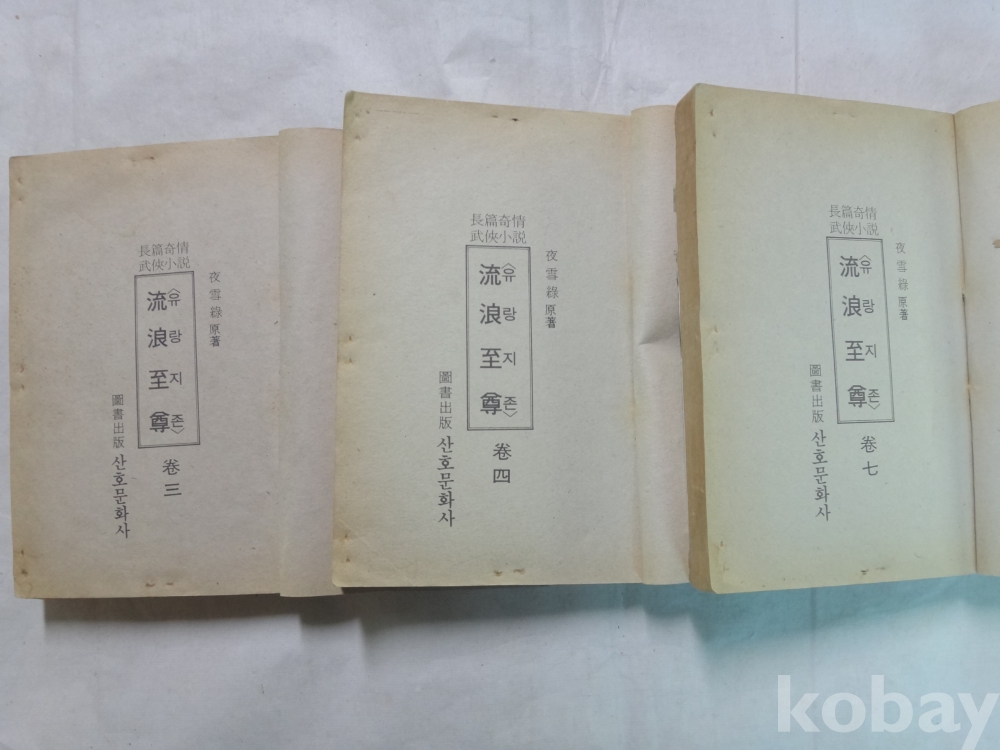 長篇奇情
武俠小說
流浪至尊
〈유랑지존〉
夜雪綠原著
卷三
圖書出版 산호문화사
長篇奇情
武俠小說
流浪至尊
〈유랑지존〉
夜雪綠原著
卷四
圖書出版 산호문화사
長篇奇情
武俠小說
流浪至尊
〈유랑지존〉
夜雪綠原著
卷七
圖書出版 산호문화사
kobay